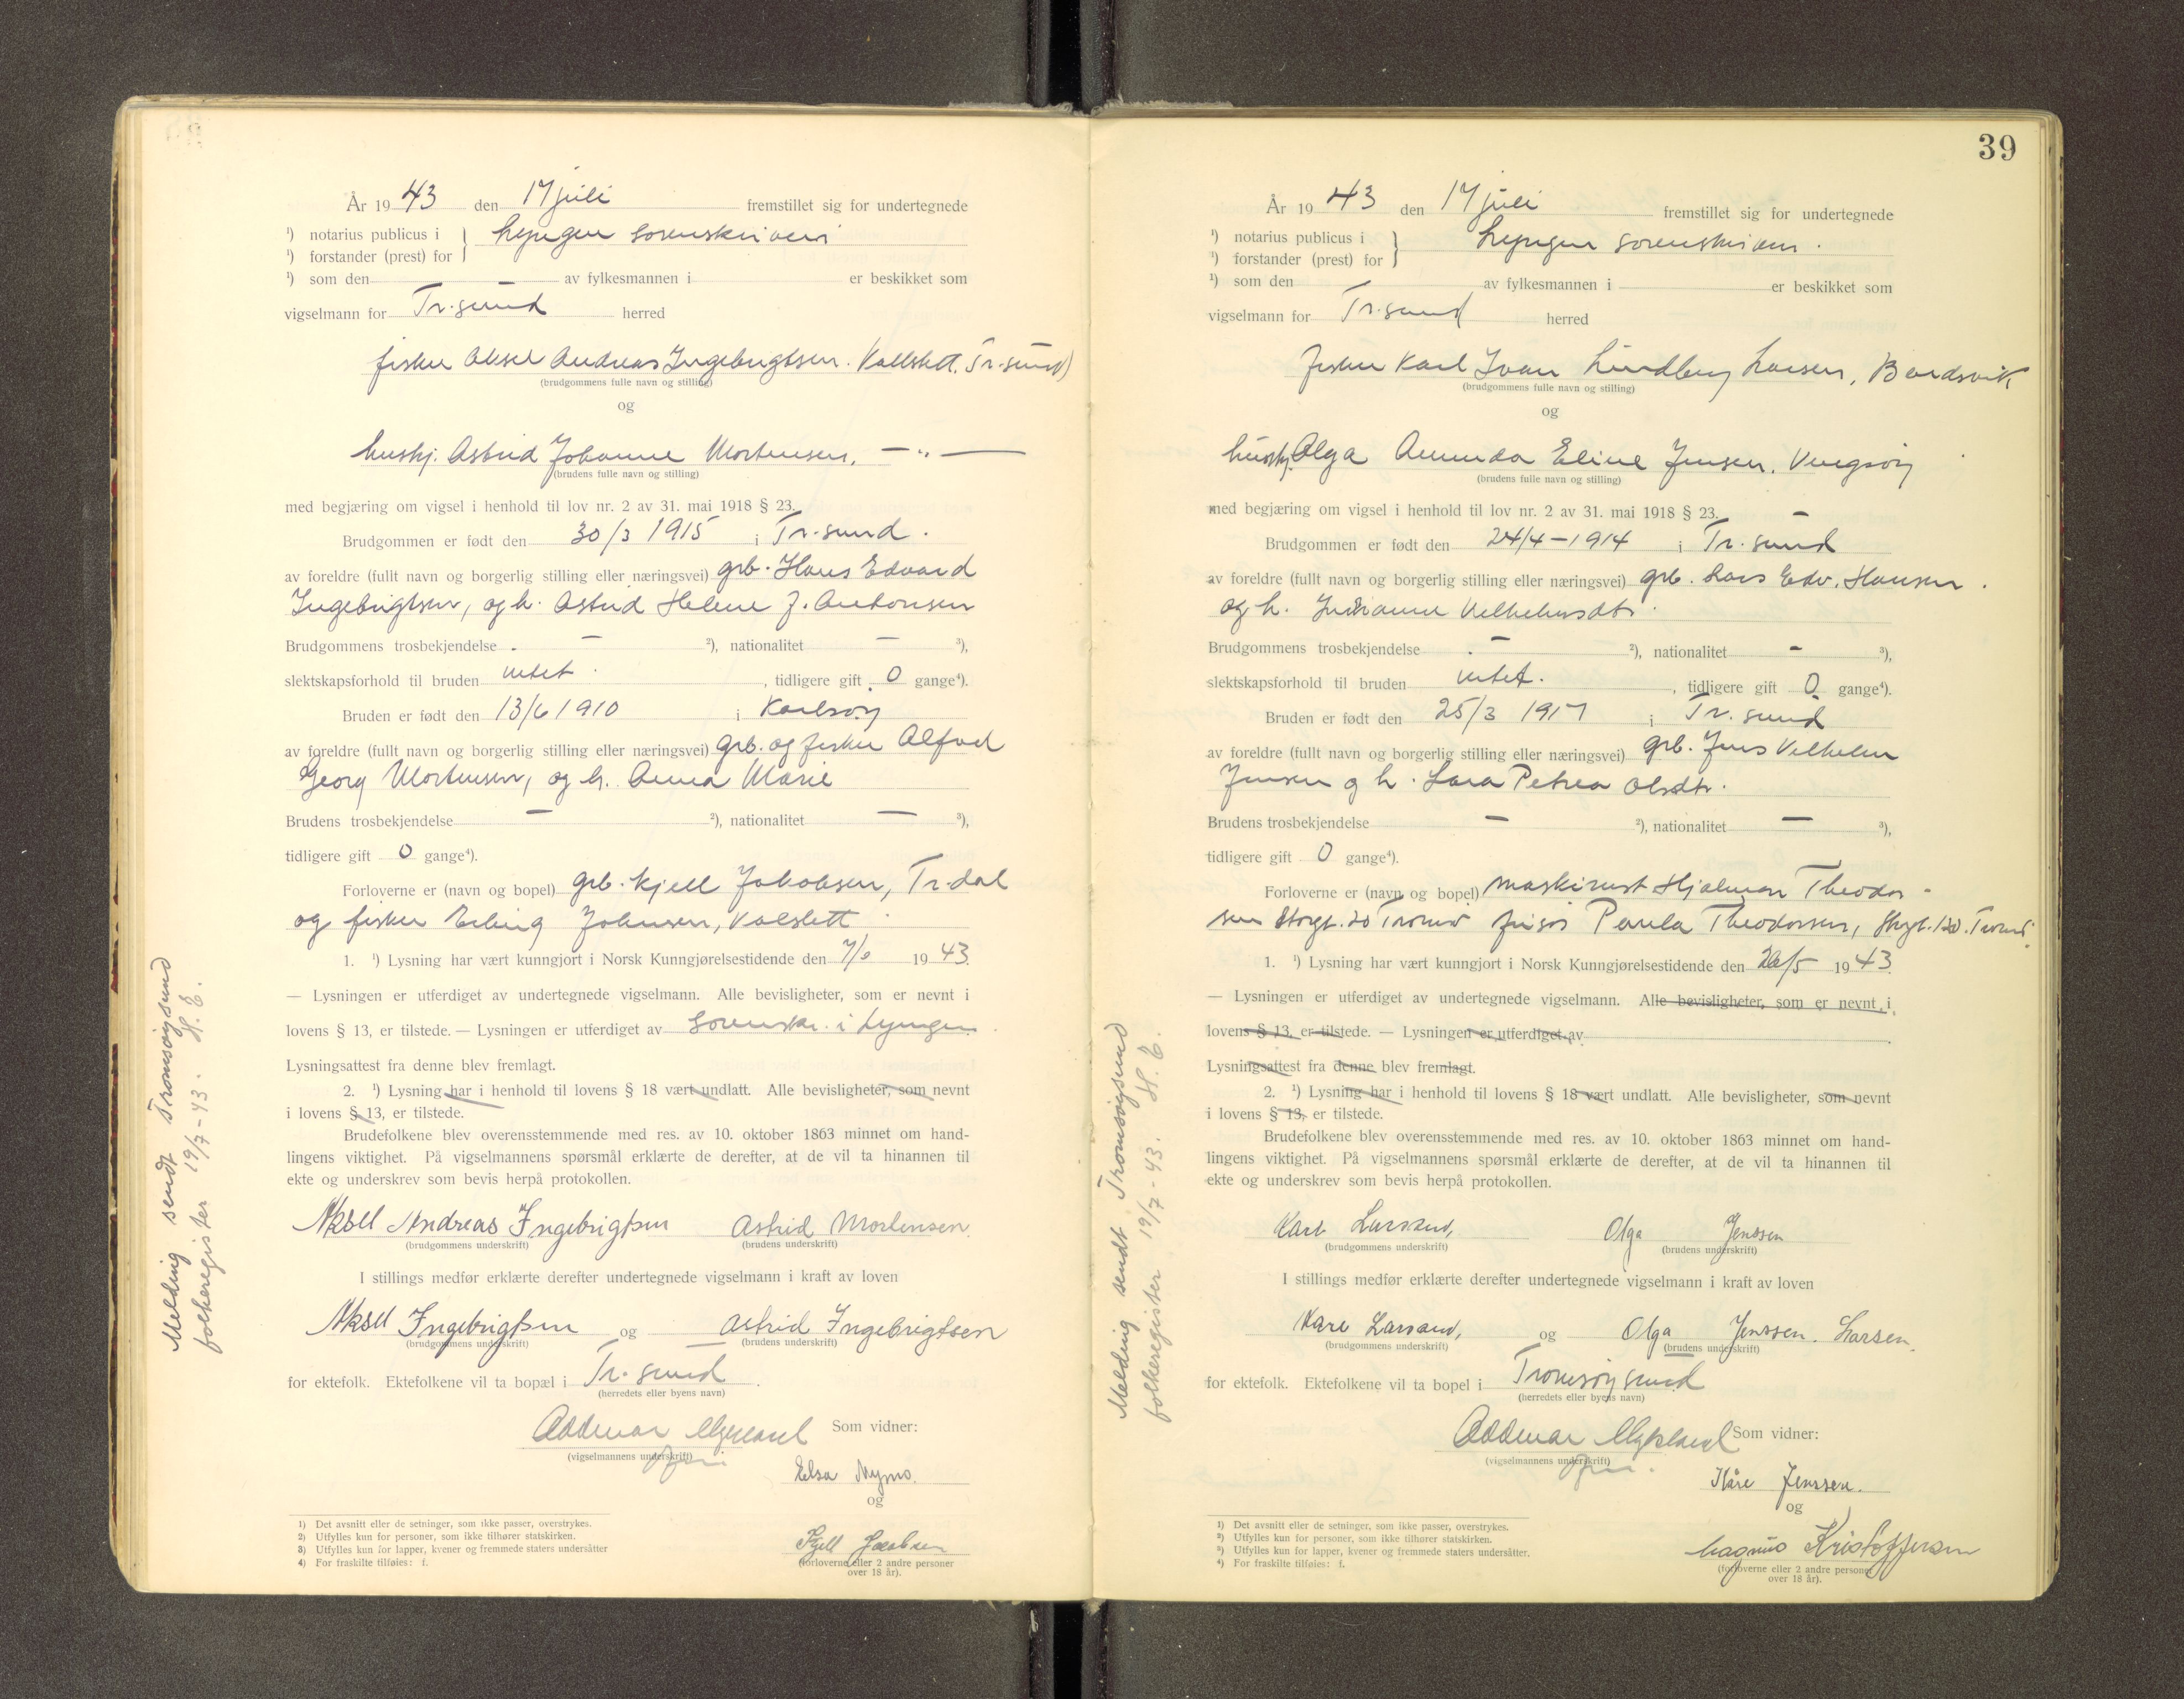 År 1943 den 17 juli fremstillet sig for undertegnede
¹) notarius publicus i } Lyngen sorenskriveri
¹) forstander (prest) for
¹) som den av fylkesmannen i er beskikket som
vigselmann for Tr.sund herred
fisker Aksel Andreas Ingebrigtsen. Valslett. Tr.sund)
(brudgommens fulle navn og stilling)
og
hushj. Astrid Johanne Mortensen, — „ —
(brudens fulle navn og stilling)
med begjæring om vigsel i henhold til lov nr. 2 av 31. mai 1918 § 23.
Brudgommen er født den 30/3 1915 i Tr.sund.
av foreldre (fullt navn og borgerlig stilling eller næringsvei) grb. Hans Edvard
Ingebrigtsen, og h. Astrid Helene J. Antonsen
Brudgommens trosbekjendelse - ²), nationalitet — ³),
slektskapsforhold til bruden intet. , tidligere gift 0 gange⁴).
Bruden er født den 13/6 1910 i Karlsøy
av foreldre (fullt navn og borgerlig stilling eller næringsvei) grb. og fisker Alfred
Georg Mortensen, og h. Anna Marie
Brudens trosbekjendelse — ²), nationalitet — ³),
tidligere gift 0 gange⁴).
Forloverne er (navn og bopel) grb. Kjell Jakobsen, Tr.dal
og fisker Erling Johnsen, Valslett
1. ¹) Lysning har vært kunngjort i Norsk Kunngjørelsestidende den 7/6 1943.
— Lysningen er utferdiget av undertegnede vigselmann. Alle bevisligheter, som er nevnt i
lovens § 13, er tilstede. — Lysningen er utferdiget av sorenskr. i Lyngen.
Lysningsattest fra denne blev fremlagt.
2. ¹) Lysning har i henhold til lovens § 18 vært undlatt. Alle bevisligheter, som nevnt
i lovens § 13, er tilstede.
Brudefolkene blev overensstemmende med res. av 10. oktober 1863 minnet om hand-
lingens viktighet. På vigselmannens spørsmål erklærte de derefter, at de vil ta hinannen til
ekte og underskrev som bevis herpå protokollen.
Aksel Andreas Ingebrigtsen Astrid Mortensen.
(brudgommens underskrift) (brudens underskrift)
I stillings medfør erklærte derefter undertegnede vigselmann i kraft av loven
Aksel Ingebrigtsen og Astrid Ingebrigtsen
(brudgommens underskrift) (brudens underskrift)
for ektefolk. Ektefolkene vil ta bopæl i Tr.sund.
(herredets eller byens navn)
Oddmar Myrland Som vidner:
(vigselmannens underskrift)
Elsa Nymo.
og
Kjell Jacobsen
(forloverne eller 2 andre personer
over 18 år).
¹) Det avsnitt eller de setninger, som ikke passer, overstrykes.
²) Utfylles kun for personer, som ikke tilhører statskirken.
³) Utfylles kun for lapper, kvener og fremmede staters undersåtter
⁴) For fraskilte tilføies: f.
Melding sendt Tromsøysund
folkeregister 19/7-43. H. E.
39
År 1943 den 17 juli fremstillet sig for undertegnede
¹) notarius publicus i } Lyngen sorenskriveri.
¹) forstander (prest) for
¹) som den av fylkesmannen i er beskikket som
vigselmann for Tr.sund herred
fisker Karl Ivan Lindberg Larsen, Bardsvik
(brudgommens fulle navn og stilling)
og
hushj. Olga Amunda Eline Jensen. Vengsøy
(brudens fulle navn og stilling)
med begjæring om vigsel i henhold til lov nr. 2 av 31. mai 1918 § 23.
Brudgommen er født den 24/4-1914 i Tr.sund
av foreldre (fullt navn og borgerlig stilling eller næringsvei) grb. Lars Edv. Hansen.
og h. Vilhelmsdtr.
Brudgommens trosbekjendelse - ²), nationalitet - ³),
slektskapsforhold til bruden intet. , tidligere gift 0 gange⁴).
Bruden er født den 25/3 1917 i Tr.sund
av foreldre (fullt navn og borgerlig stilling eller næringsvei) grb. Jens Vilhelm
Jensen og h. Lara Petrea Olsdtr.
Brudens trosbekjendelse — ²), nationalitet — ³),
tidligere gift 0 gange⁴).
Forloverne er (navn og bopel) maskinist Hjalmar Theodor-
sen Storgt. 20 Tromsø Paula Theodorsen, Storgt. 120. Tromsø.
1. ¹) Lysning har vært kunngjort i Norsk Kunngjørelsestidende den 26/5 1943
— Lysningen er utferdiget av undertegnede vigselmann. Alle bevisligheter, som er nevnt i
lovens § 13, er tilstede. — Lysningen er utferdiget av .
Lysningsattest fra denne blev fremlagt.
2. ¹) Lysning har i henhold til lovens § 18 vært undlatt. Alle bevisligheter, som nevnt
i lovens § 13, er tilstede.
Brudefolkene blev overensstemmende med res. av 10. oktober 1863 minnet om hand-
lingens viktighet. På vigselmannens spørsmål erklærte de derefter, at de vil ta hinannen til
ekte og underskrev som bevis herpå protokollen.
Karl Larsen, Olga Jenssen
(brudgommens underskrift) (brudens underskrift)
I stillings medfør erklærte derefter undertegnede vigselmann i kraft av loven
Karl Larsen, og Olga Jenssen. Larsen.
(brudgommens underskrift) (brudens underskrift)
for ektefolk. Ektefolkene vil ta bopel i Tromsøysund
(herredets eller byens navn)
Oddmar Myrland Som vidner:
(vigselmannens underskrift)
Kåre Jenssen.
og
Magnus Kristoffersen
(forloverne eller 2 andre personer
over 18 år).
¹) Det avsnitt eller de setninger, som ikke passer, overstrykes.
²) Utfylles kun for personer, som ikke tilhører statskirken.
³) Utfylles kun for lapper, kvener og fremmede staters undersåtter.
⁴) For fraskilte tilføies: f.
Melding sendt Tromsøysund
folkeregister 19/7-43. H. E.